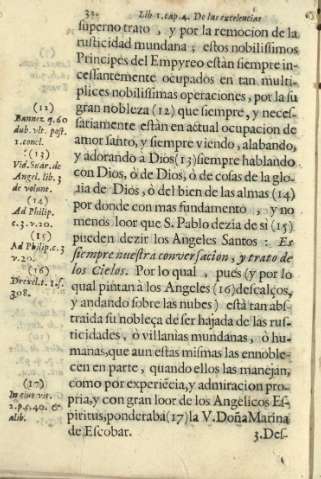 32 Lib 1. cap. 4. De las excelencias
superno trato, y por la remocion de la
rusticidad mundana; estos nobilissimos
Principes del Empyreo están siempre in-
cessantemente ocupados en tan multi-
plices nobilissimas operaciones, por la su
gran nobleza (12) que siempre, y neces-
sariamente están en actual ocupacion de
amor santo, y siempre viendo, alabando,
y adorando à Dios (13) siempre hablando
con Dios, ò de Dios, ò de cosas de la glo-
ria de Dios, ò del bien de las almas (14)
por donde con mas fundamento, y no
menos loor que S. Pablo dezia de si (15)
pueden dezir los Angeles Santos: Es
siempre nuestra conversacion, y trato de
los Cielos. Por lo qual, pues (y por lo
qual pintan à los Angeles (16) descalços,
y andando sobre las nubes) està tan abs-
traida su nobleça de ser hajada de las rus-
ticidades, ò villanias mundanas, ò hu-
manas, que aun estas mismas las ennoble-
cen en parte, quando ellos las manejan,
como por experiẽcia, y admiracion pro-
pria, y con gran loor de los Angelicos Es-
piritus, ponderaba (17) la V. Doña Marina
de Escobar. 3. Des-
(12)
Bannez q. 60
dub. vlt. post.
1. concl.
(13)
Vid. Suar. de
Angel. lib. 3
de volunt.
(14)
Ad Philip.
c. 3. v. 20.
(15)
Ad Philip. c. 3
v. 20.
(16)
Drexel. t. 1. f.
308.
(17)
In eius vit.
2. p. c. 40. &
alib.